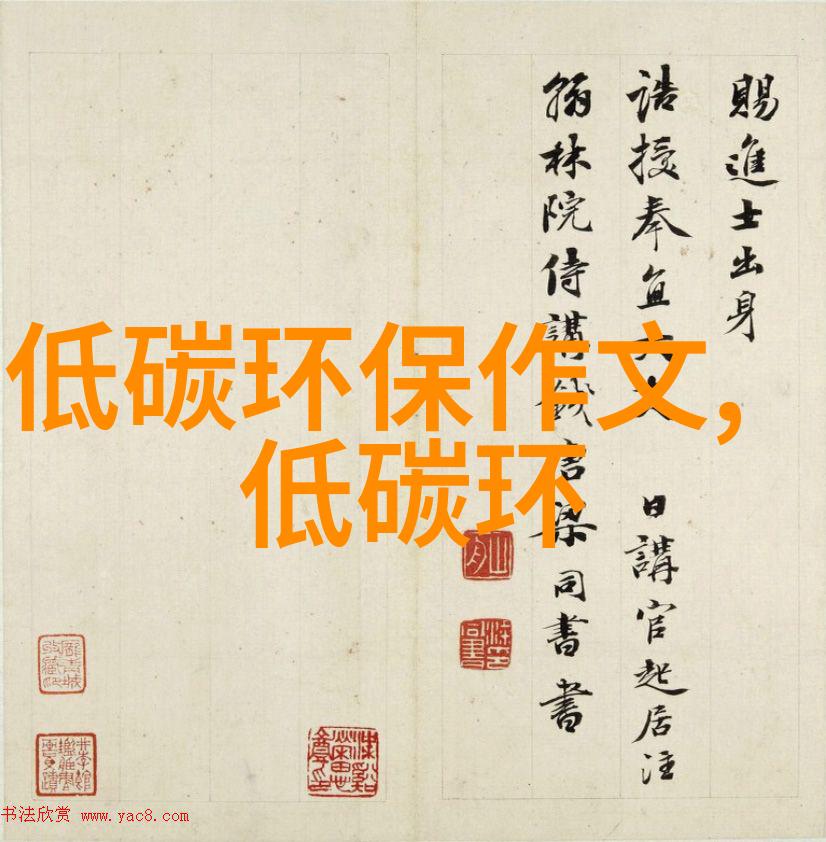 賜進士出身
誥授奉直大夫 日講官起居注
翰林院侍講錢唐梁同書書
低碳环保作文,
低碳环
书法欣赏 www.yac8.com